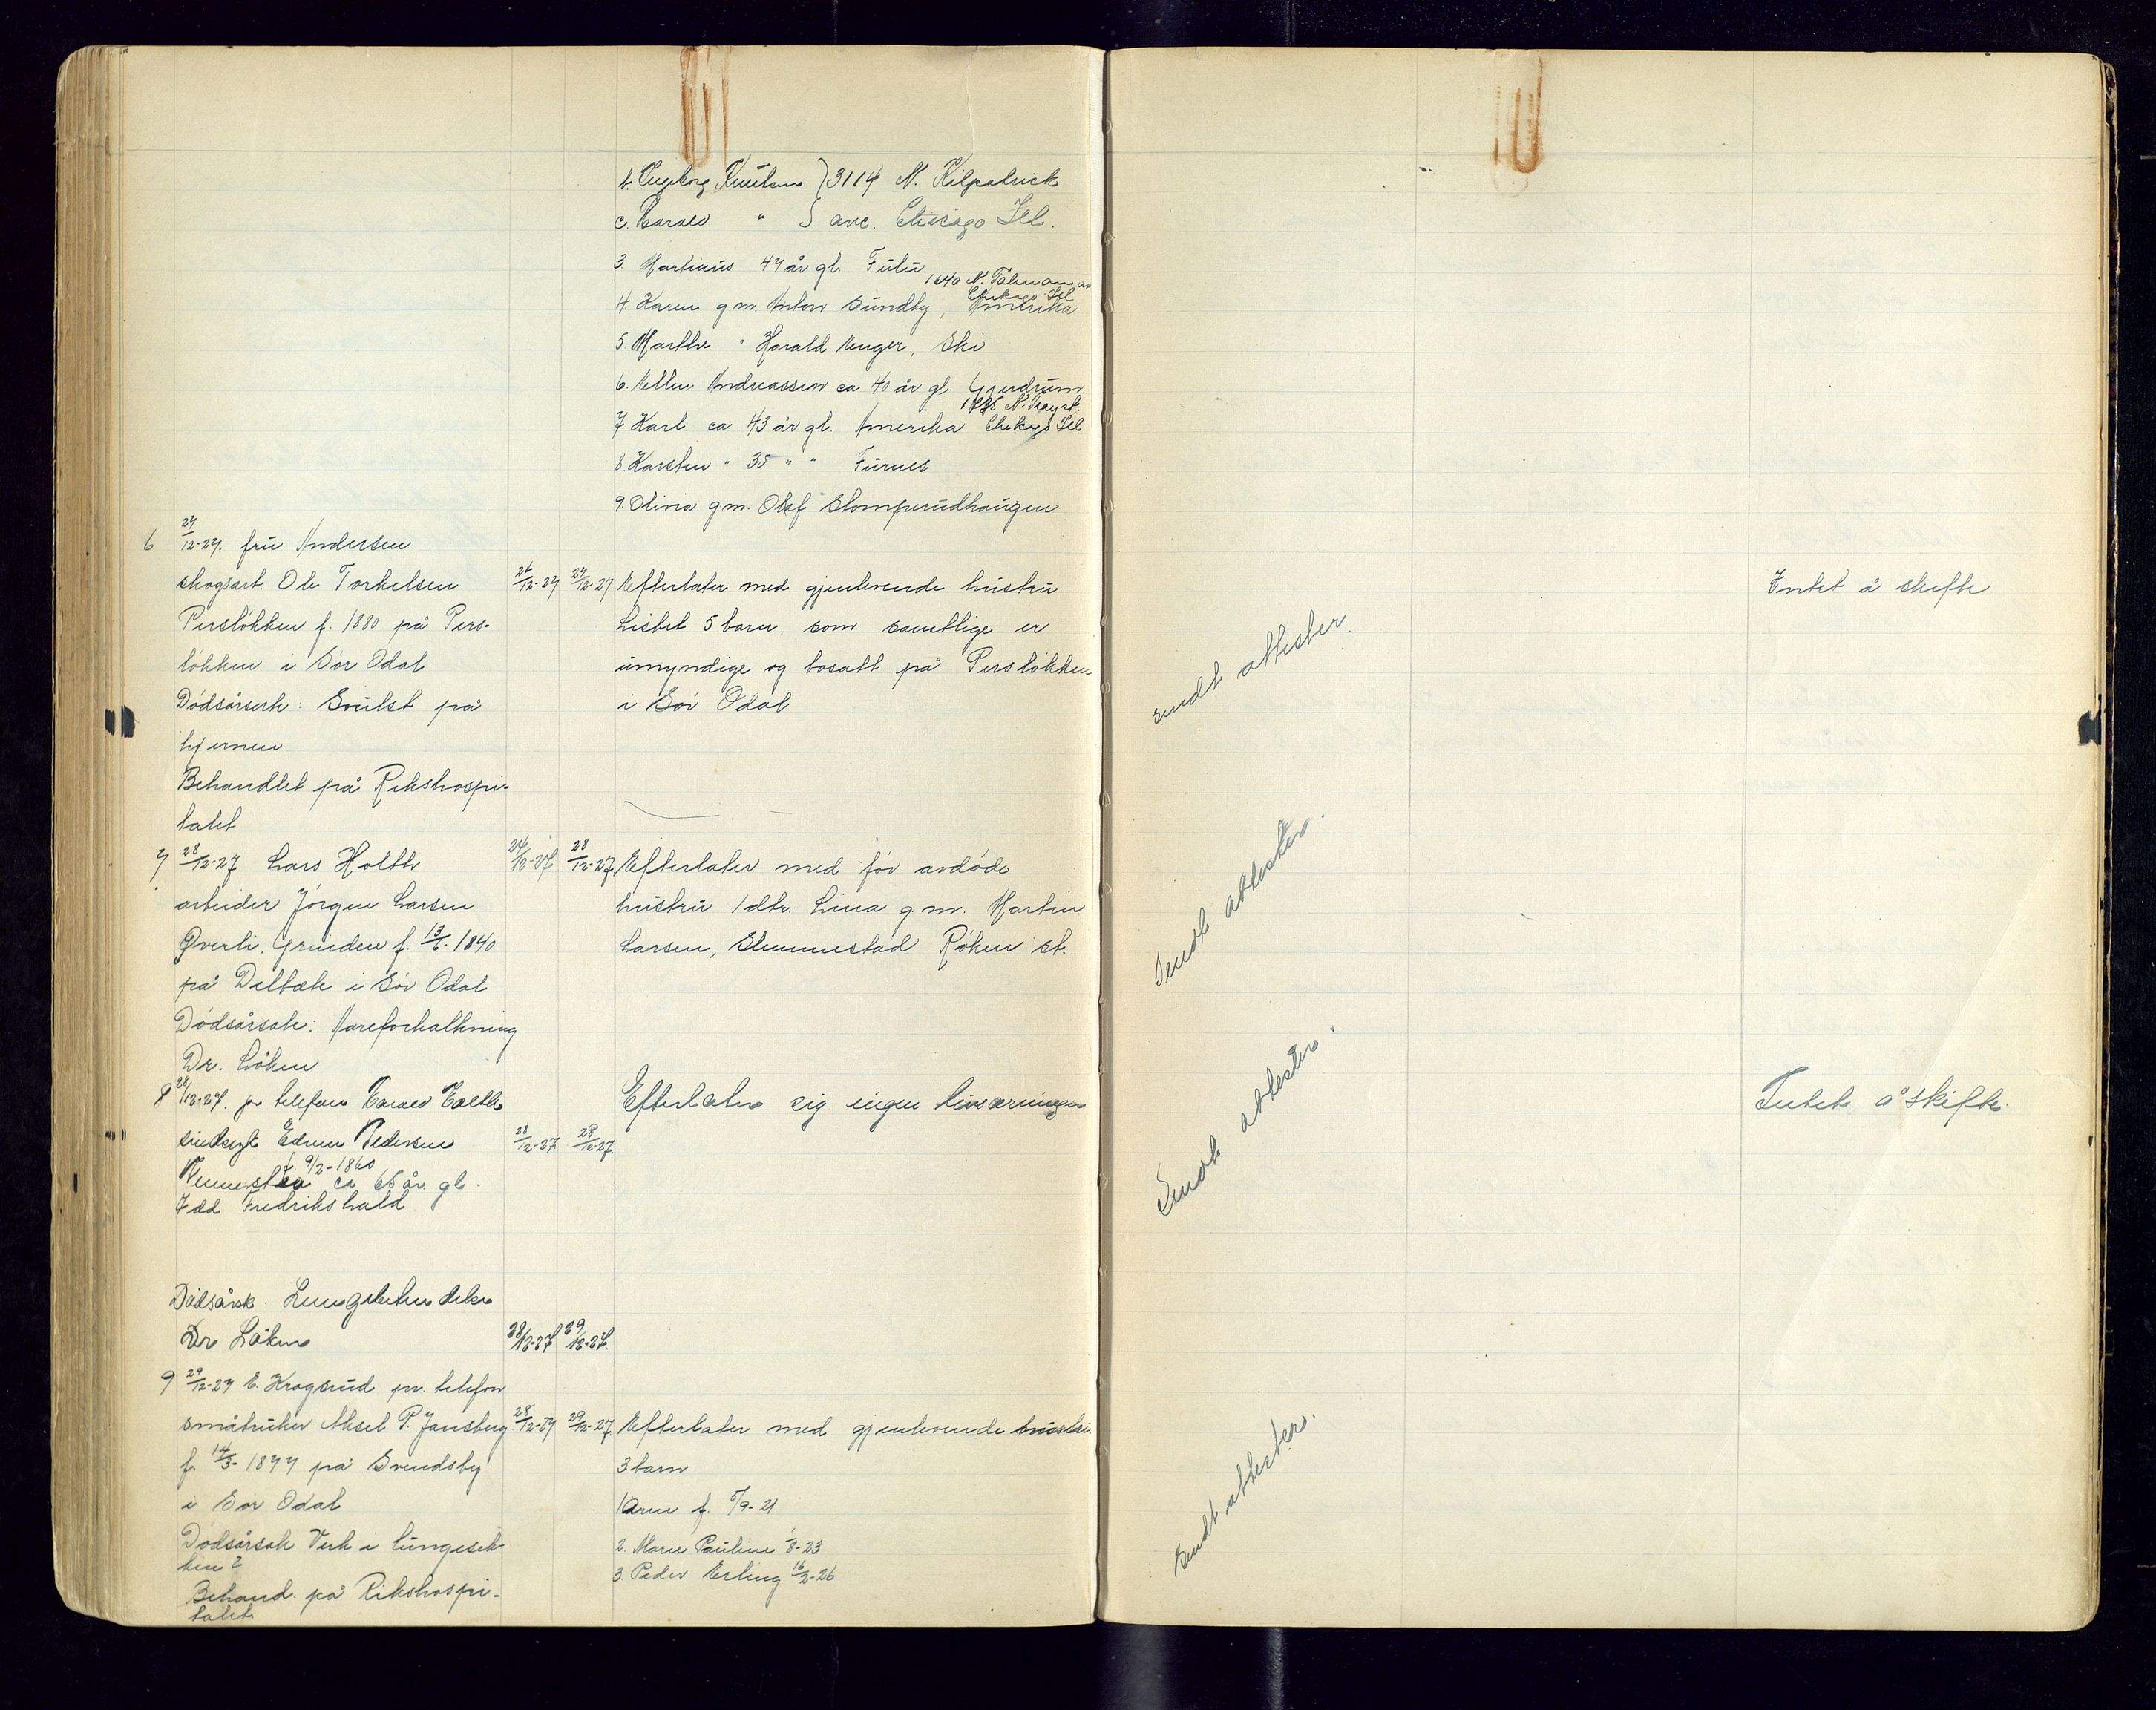 b. Ingeborg Knutsen } 3114 N. Kilpatrick
c. Harald " } ave. Chicago Ill.
3 Martinus 47 år gl. Fulu
1640 N. Talman av
Chikago Ill
4. Karen g m. Anton Sundby, Amerika
5. Marthe " Harald Unger, Ski
6. Andreassen ca 40 år gl. Gjerdrum
Chikago Ill
7. Karl ca 43 år gl. Amerika
8. Karsten " 35 " " Furnes
9. Olivia g m. Olaf Slomperudhaugen
6 27/12-27. fru Andersen
skogsarb. Ole Torkelsen 26/12-27 27/12-27 Efterlater med gjenlevende hustru
Persløkken f. 1880 på Pers- Lisbet 5 barn som samtlige er
løkken i Sør Odal umyndige og bosatt på Persløkken
Dødsårsak: Svulst på i Sør Odal
hjernen
Behandlet på Rikshospi-
talet
Intet å skifte
sendt attester.
7 28/12-27 Lars Holth 24/12-27 28/12-27 Efterlater med før avdøde
arbeider Jørgen Larsen hustru 1 dtr. Lina g m. Martin
Øverli, Grinden f. 13/6-1840 Larsen, Slemmestad Røken st.
på Dilbæk i Sør Odal
Dødsårsak: Åreforkalkning
Dr. Løken
Sendt attester.
8 28/12-27. pr telefon Harald Holth Efterlater sig ingen livsarvinger
Edvin Pedersen 28/12-27 29/12-27
f. 9/2-1860
ca 65 år gl.
Idd Fredrikshald
Dødsårsk. Lungebetendelse
Dr Løken 28/12-27 29/12-27.
Intet å skifte.
Sendt attester.
9 29/12-27 E. Krogsrud pr. telefon
småbruker Aksel P. Jansberg 28/12-27 29/12-27 Efterlater med gjenlevende hustru
f. 14/3-1877 på Svendsby 3 barn
i Sør Odal 1 Arne f. 5/9-21
Dødsårsak Verk i lungesek- 2. Marie Pauline 1/8-23
ken? 3. Peder Erling 16/2-26
Behand. på Rikshospi-
talet
Sendt attester.